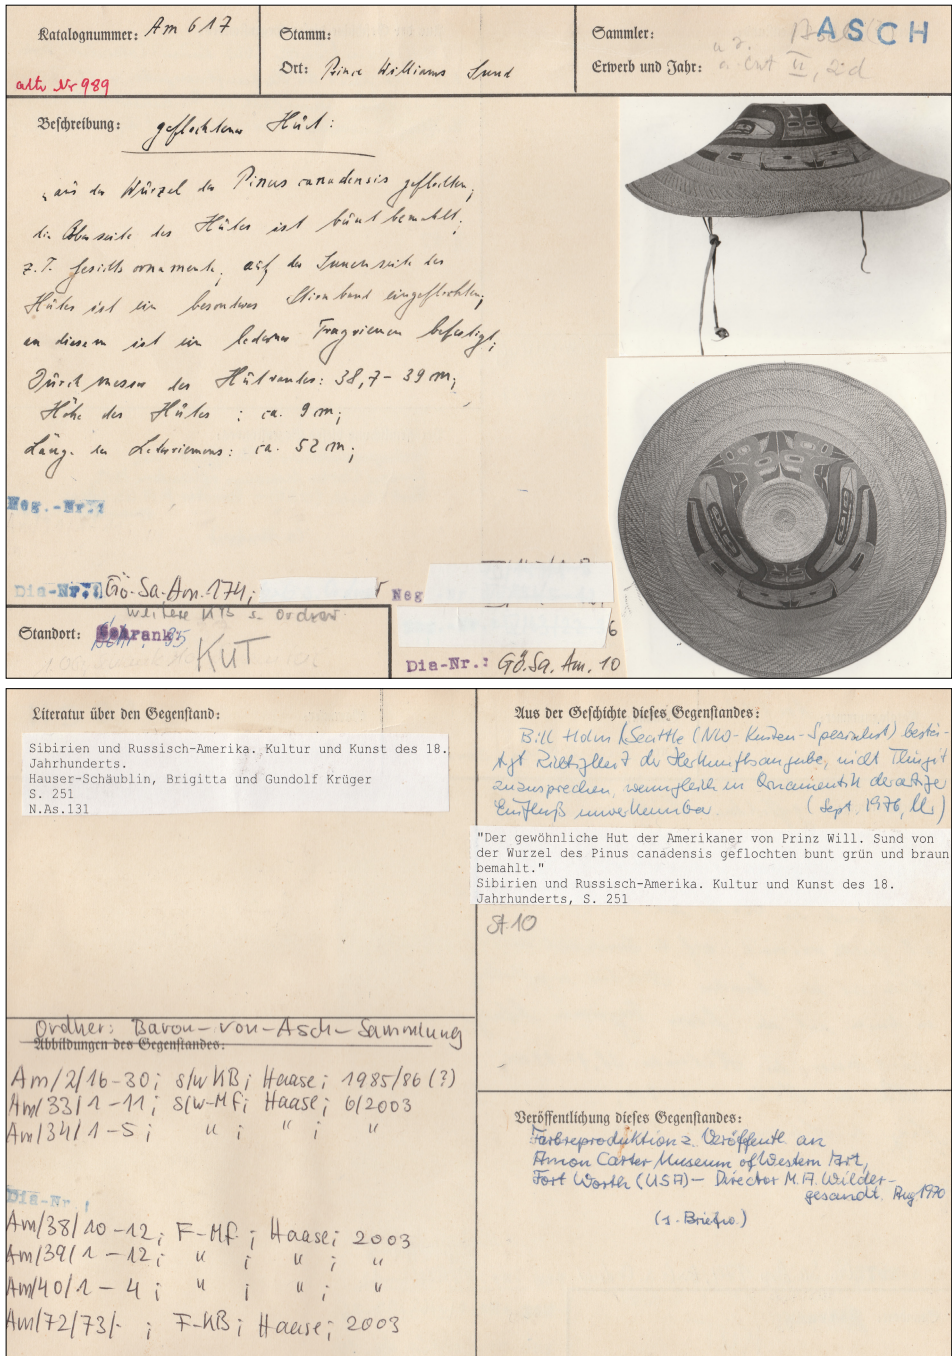 Katalognummer: Am 617
alte Nr 989
Stamm:
Ort: Prince Williams Sund
Sammler: ASCH
Erwerb und Jahr: II, 2d
Beschreibung: geflochtener Hut:
aus der Wurzel des Pinus canadensis geflochten;
die Oberseite des Hutes ist bunt bemahlt;
z.T. Gesichtsornamente; auf der Innenseite des
Hutes ist ein besonderes Stirnband eingeflochten;
an diesem ist ein lederner Tragriemen befestigt;
Durchmesser des Hutrandes: 38,7 - 39 cm;
Höhe des Hutes : ca. 9 cm;
Länge des Lederriemens: ca. 52 cm;
Neg.-Nr.:
Dia-Nr.: Gö-Sa-Am. 174;
Neg
weitere KB s. Ordner
Standort: Schrank: 85
KUT
6
Dia-Nr.: Gö.Sa.Am. 10
Literatur über den Gegenstand:
Sibirien und Russisch-Amerika. Kultur und Kunst des 18.
Jahrhunderts.
Hauser-Schäublin, Brigitta und Gundolf Krüger
S. 251
N.As.131
Aus der Geschichte dieses Gegenstandes:
Bill Holm, Seattle (NW-Küsten-Spezialist) bestä-
tigt Richtigkeit der Herkunftsangabe, nicht Thlingit
zuzusprechen, wenngleich in Ornamentik derartige
Einfluß unverkennbar. (Sept. 1976, Ur)
"Der gewöhnliche Hut der Amerikaner von Prinz Will. Sund von
der Wurzel des Pinus canadensis geflochten bunt grün und braun
bemahlt."
Sibirien und Russisch-Amerika. Kultur und Kunst des 18.
Jahrhunderts, S. 251
St. 10
Ordner: Baron-von-Asch-Sammlung
Abbildungen des Gegenstandes:
Am/2/16-30; s/w KB; Haase; 1985/86 (?)
Am/33/1-11; s/w-Mf; Haase; 6/2003
Am/34/1-5; " ; " ; "
Dia-Nr.:
Am/38/10-12; F-Mf; Haase; 2003
Am/39/1-12; " ; " ; "
Am/40/1-4; " ; " ; "
Am/72/73/- ; F-KB; Haase; 2003
Veröffentlichung dieses Gegenstandes:
Farbreproduktion z. Veröffentl. an
Amon Carter Museum of Western Art,
Fort Worth (USA) - Director M.A. Wilder -
gesandt. Aug 1970
(s. Briefw.)